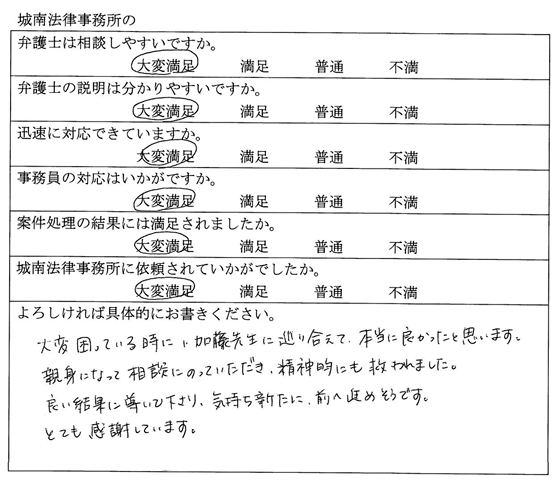 城南法律事務所の
弁護士は相談しやすいですか。
大変満足 満足 普通 不満
弁護士の説明は分かりやすいですか。
大変満足 満足 普通 不満
迅速に対応できていますか。
大変満足 満足 普通 不満
事務員の対応はいかがですか。
大変満足 満足 普通 不満
案件処理の結果には満足されましたか。
大変満足 満足 普通 不満
城南法律事務所に依頼されていかがでしたか。
大変満足 満足 普通 不満
よろしければ具体的にお書きください。
大変困っている時に、加藤先生に巡り合えて、本当に良かったと思います。
親身になって相談にのっていただき、精神的にも救われました。
良い結果に導いて下さり、気持ち新たに、前へ進めそうです。
とても感謝しています。